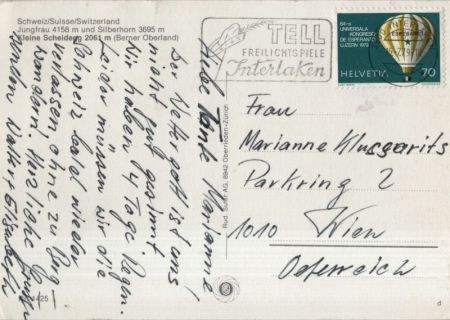 Schweiz/Suisse/Switzerland
Jungfrau 4158 m und Silberhorn 3695 m
Kleine Scheidegg 2061 m (Berner Oberland)
Liebe Tante Marianne
Der Wettergott ist uns
nicht gut gesinnt
Wir haben 14 Tage Regen.
Leider müssen wir die
Schweiz bald wieder
verlassen ohne zu
wandern. Herzliche
Walter Elisabeth
4425
Rud. Suter AG, 8942 Oberrieden-Zürich
TELL
FREILICHTSPIELE
Interlaken
64-a
UNIVERSALA
KONGRESO
DE ESPERANTO
LUZERN 1979
HELVETIA 70
Frau
Marianne Klusgarits
Parkring 2
1010 Wien
Österreich
d